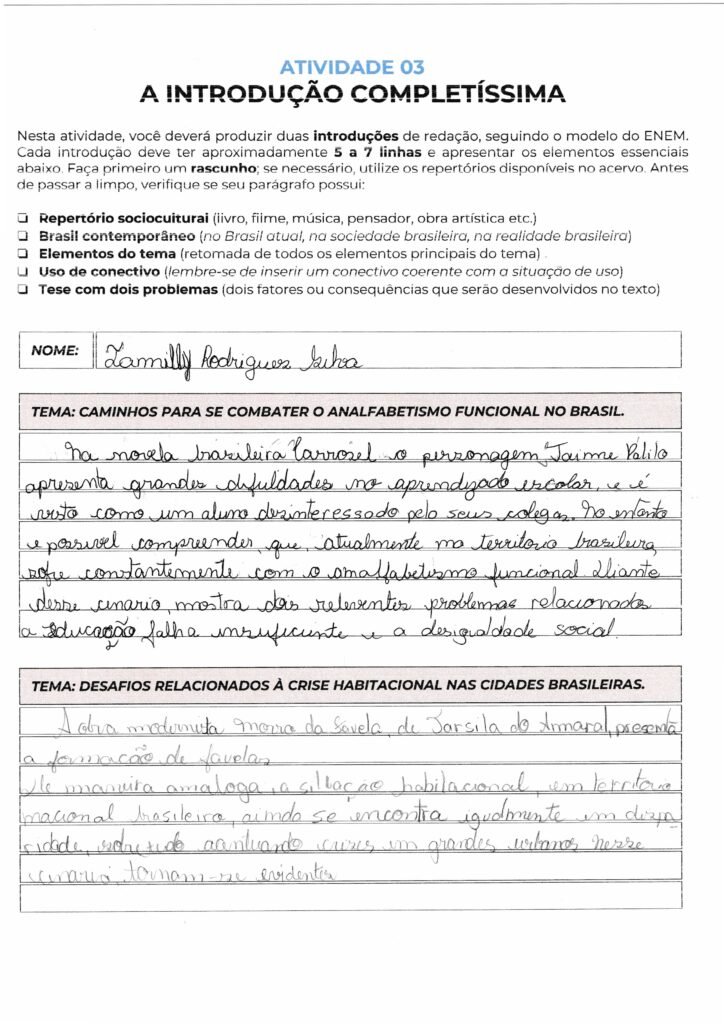 ATIVIDADE 03
A INTRODUÇÃO COMPLETÍSSIMA
Nesta atividade, você deverá produzir duas introduções de redação, seguindo o modelo do ENEM.
Cada introdução deve ter aproximadamente 5 a 7 linhas e apresentar os elementos essenciais
abaixo. Faça primeiro um rascunho; se necessário, utilize os repertórios disponíveis no acervo. Antes
de passar a limpo, verifique se seu parágrafo possui:
❏ Repertório sociocultural (livro, filme, música, pensador, obra artística etc.)
❏ Brasil contemporâneo (no Brasil atual, na sociedade brasileira, na realidade brasileira)
❏ Elementos do tema (retomada de todos os elementos principais do tema)
❏ Uso de conectivo (lembre-se de inserir um conectivo coerente com a situação de uso)
❏ Tese com dois problemas (dois fatores ou consequências que serão desenvolvidos no texto)
NOME: Zamilly Rodrigues Silva
TEMA: CAMINHOS PARA SE COMBATER O ANALFABETISMO FUNCIONAL NO BRASIL.
Na novela brasileira Carrosel o personagem, Jaime Palilo
apresenta grandes difuldades no aprendizado escolar, e é
visto como um aluno desinteressado pelo seus colegas. No entanto
e possivel compreender, que, atualmente no territorio brasileira,
sofre constantemente com o analfabetismo funcional. Diante
desse cinario, mostra dois relevентes problemas relacionados
a educação falha insuficiente e a desigualdade social.
TEMA: DESAFIOS RELACIONADOS À CRISE HABITACIONAL NAS CIDADES BRASILEIRAS.
A obra modernista morro da favela, de Tarsila do Amaral, presenta
a formação de favelas
De maneira analoga, a situação habitacional, em territorio
nacional brasileiro, ainda se encontra igualmente em dispa
ridade, sobretudo acentuando crises em grandes urbanos nesse
cinario, tornam-se evidentes